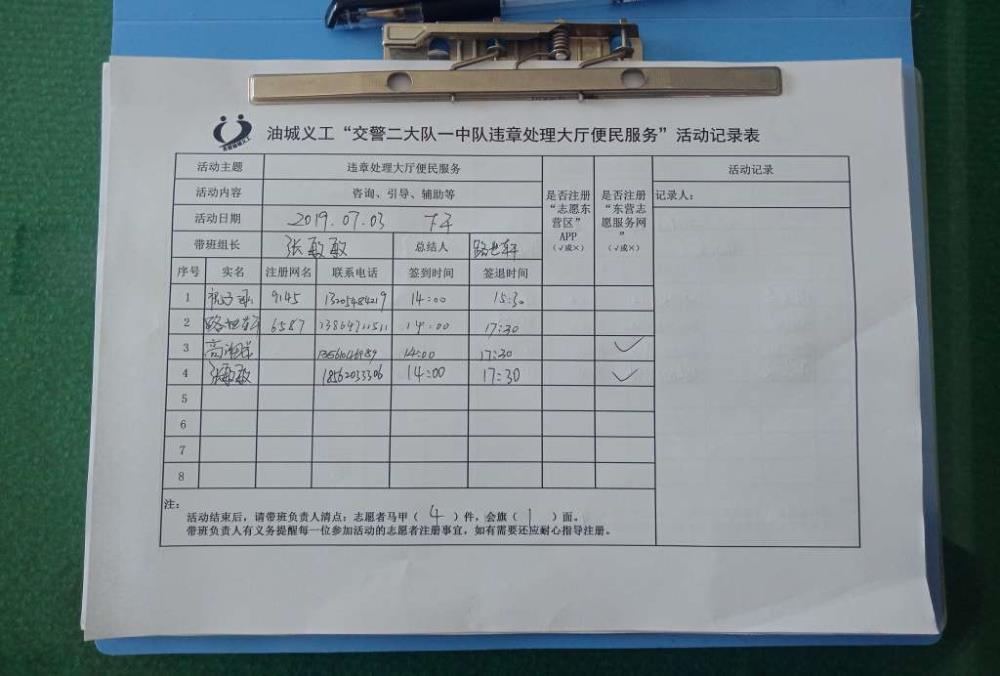 油城义工“交警二大队一中队违章处理大厅便民服务”活动记录表
活动主题 违章处理大厅便民服务 是否注册“志愿东营区”APP（√或×） 是否注册“东营志愿服务网”（√或×） 活动记录
活动内容 咨询、引导、辅助等 记录人：
活动日期 2019.07.03 下午
带班组长 张敏敏 总结人 路世轩
序号 实名 注册网名 联系电话 签到时间 签退时间
1 9145 13205484219 14:00 15:30
2 路世轩 6587 13864711511 14:00 17:30
3 14:00 17:30 ✓
4 张敏敏 18562033306 14:00 17:30 ✓
5
6
7
8
注：
活动结束后，请带班负责人清点：志愿者马甲（ 4 ）件，会旗（ 1 ）面。
带班负责人有义务提醒每一位参加活动的志愿者注册事宜，如有需要还应耐心指导注册。